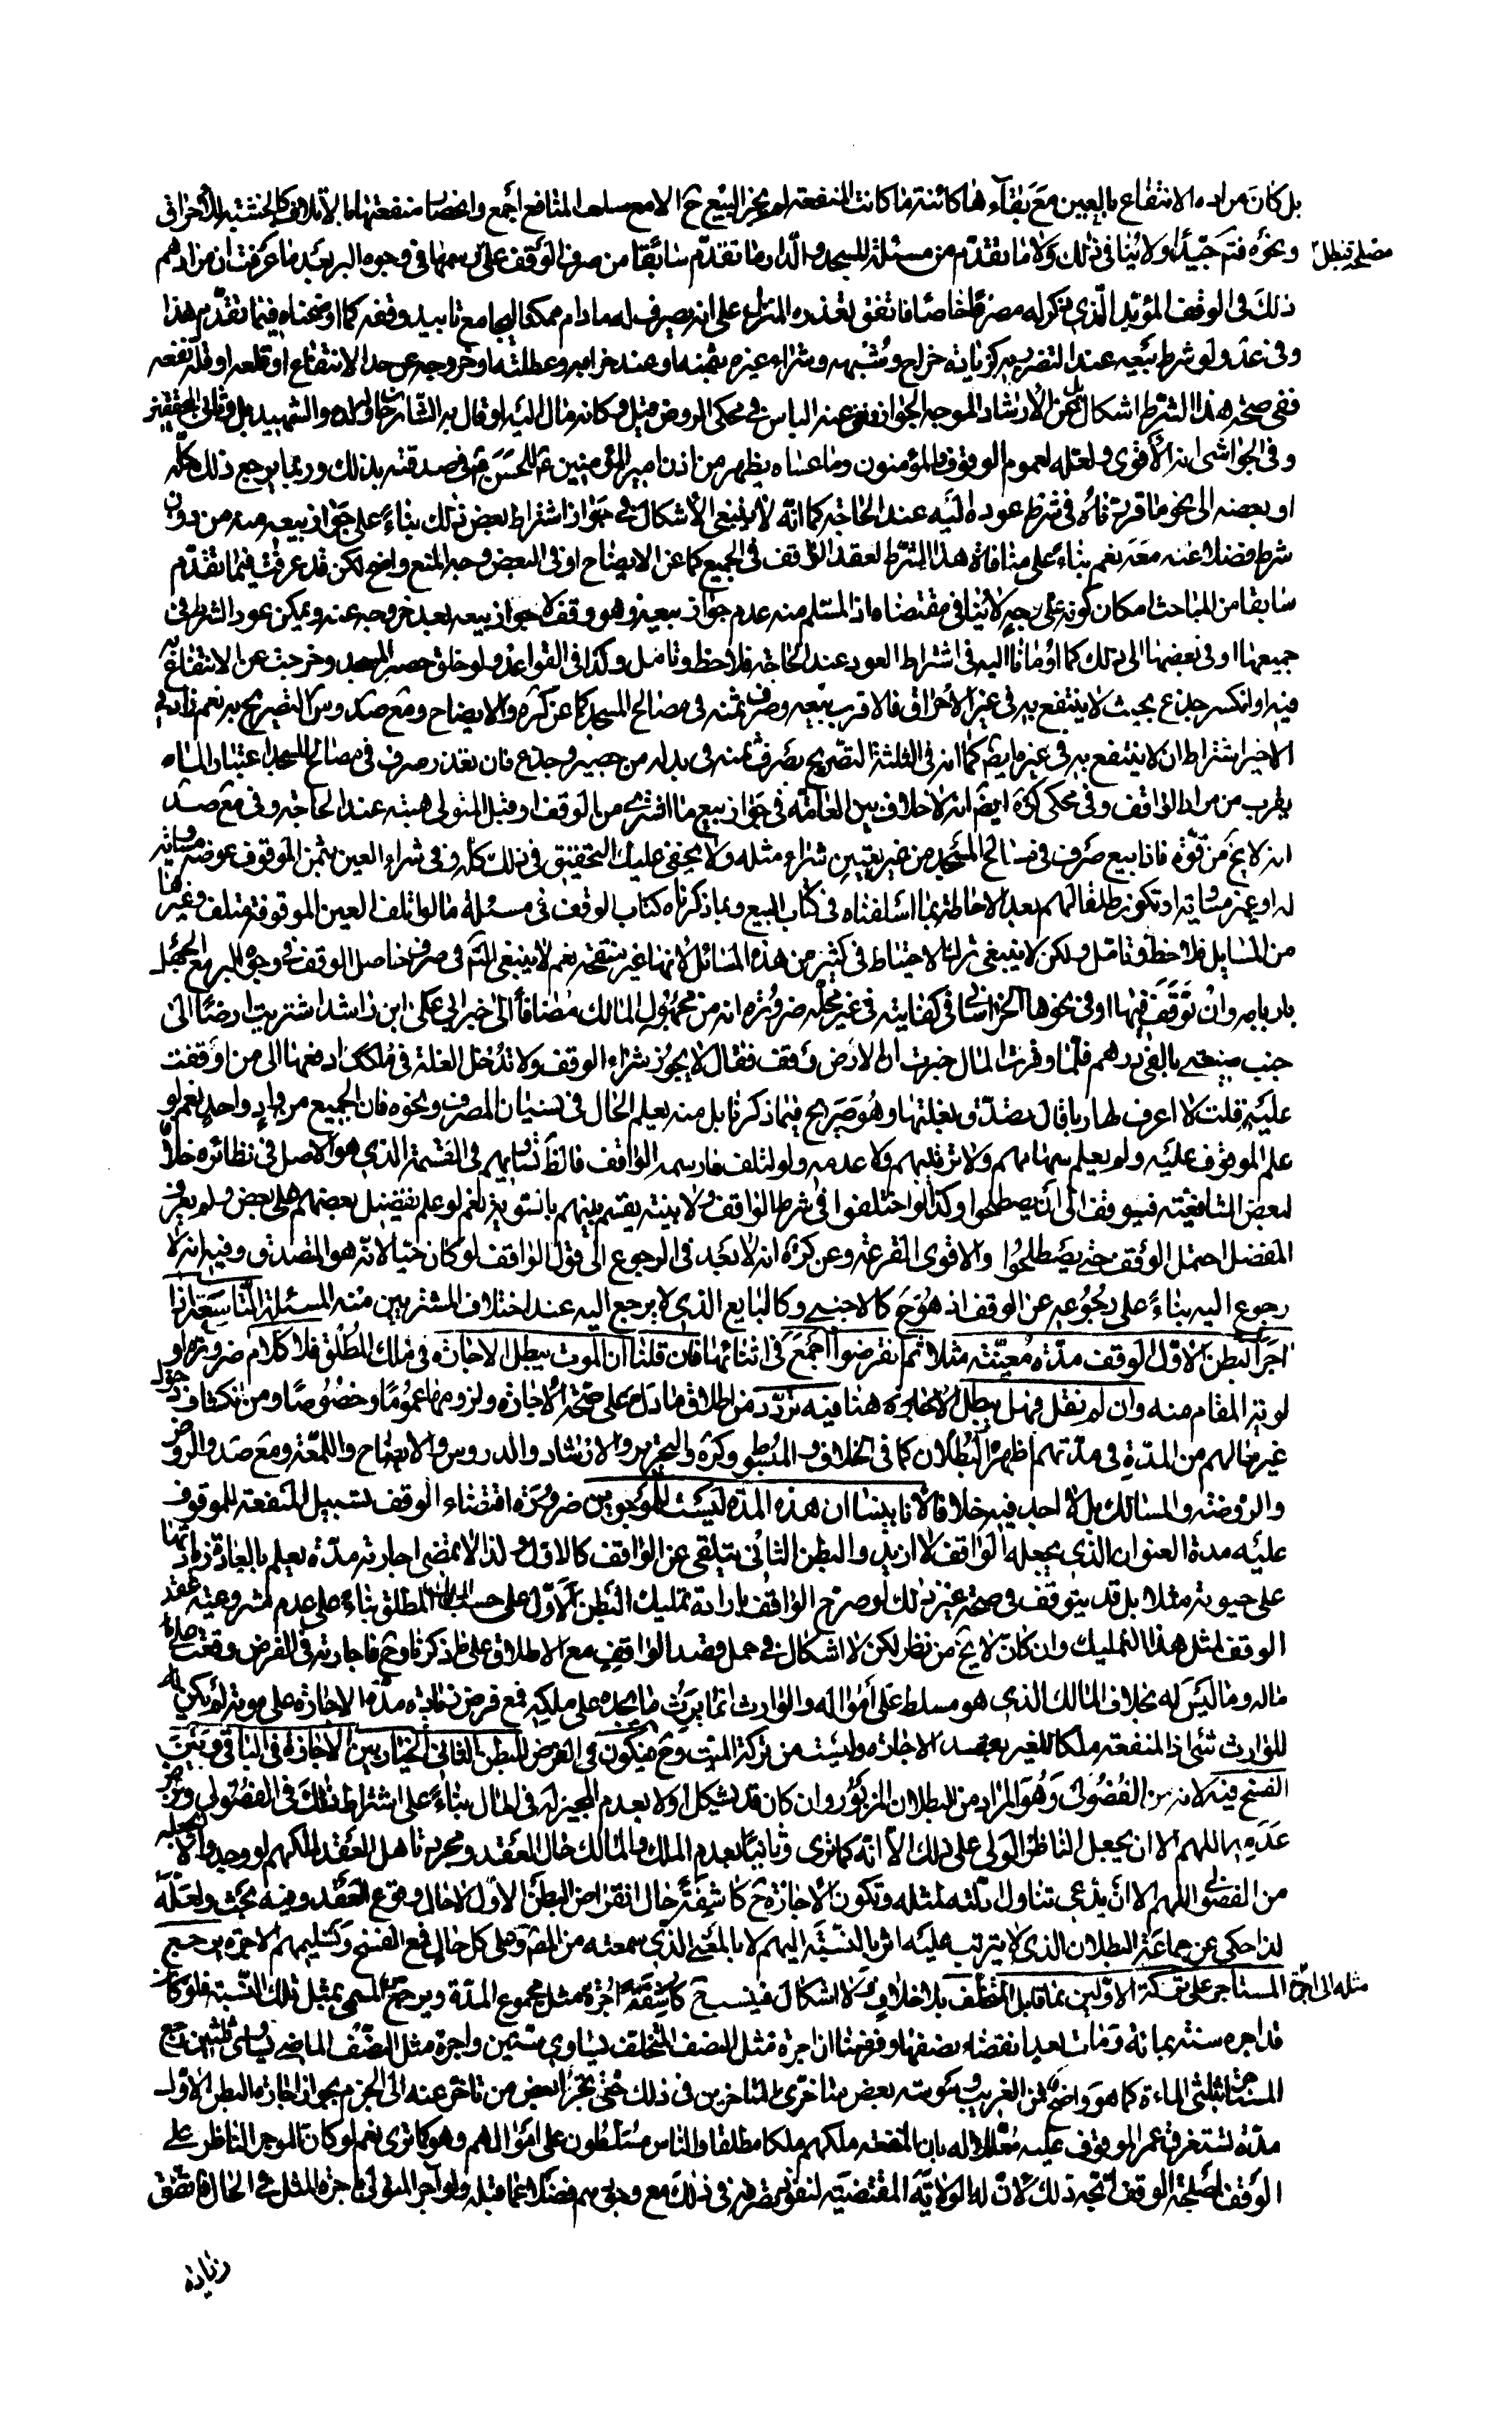 بل كان مراده الانتفاع بالعين مع بقاء ها كائنة ما كانت المنفعة لم يجز البيع ح الا مع سلب المنافع اجمع وانحصار منفعتها بالاتلاف كالخشبة للأحراق
ونحوه فتم جيدا ولا ينافى ذلك ولا ما تقدم من مسئلة المسجد والدار ما تقدم سابقا من صرف الوقف على مصلحة تبطل رسمها فى وجوه البر بعد ما عرفت ان مرادهم
ذلك فى الوقف المؤبد الذى ذكر له مصرفا خاصا فاتفق تعذره المنزل على انه يصرف له ما دام ممكنا لا يجامع تابيد وقفه كما اوضحناه فيما تقدم هذا
وفى عد ولو شرط بيعه عند التضرر به كزيادة خراج وشبهه وشراء غيره بثمنه او عند خرابه وعطلته او خروجه عن حد الانتفاع او قلعه او قلة نفعه
ففى صحة هذا الشرط اشكال بل عن الارشاد الموجه الجواز ونفى عنه الباس فى محكى الروض قيل وكانه مال اليه او قال به الشارحان ولده والشهيد بل وثانى المحققين
وفى الحواشى انه الأقوى ولعله لعموم الوقوف والمؤمنون وما عساه يظهر من اذن امير المؤمنين ع الحسن ع فى صدقته بذلك وربما يرجع ذلك كله
او بعضه الى نحو ما قررناه فى شرط عوده اليه عند الحاجة كما انه لا ينبغى الأشكال فى جواز اشتراط بعض ذلك بناء على جواز بيعه منه من دون
شرط فضلا عنه معه نعم بناء على منافاة هذا الشرط لعقد الوقف فى الجميع كما عن الايضاح او فى البعض وجه المنع واضح لكن قد عرفت فيما تقدم
سابقا من المباحث امكان كونه على وجه لا ينافى مقتضاه اذ المسلم منه عدم جواز بيعه وهو وقف لا جواز بيعه بعد خروجه عنه ويمكن عود الشرط فى
جميعها او فى بعضها الى ذلك كما اومانا اليه فى اشتراط العود عند الحاجة فلاحظ وتامل وكذا فى القواعد ولو خلق حصير المسجد وخرجت عن الانتفاع به
فيه او انكسر جذع بحيث لا ينتفع به فى غير الاحراق فالاقرب بيعه وصرف ثمنه فى مصالح المسجد كما عن كره والايضاح ومع صد وس التصريح به نعم زاد فى
الاخير اشتراط ان لا ينتفع به فى غيره ايضا كما انه فى الثلثة التصريح بصرف ثمنه فى بدله من حصير وجذع فان تعذر صرف فى مصالح المسجد اعتبارا لما
يقرب من مراد الواقف وفى محكى كره ايضا انه لا خلاف بين العامة فى جواز بيع ما اشترى من الوقف او قبل المتولى هبته عند الحاجة وفى مع صد
انه لا يخ من قوة فاذا بيع صرف فى مصالح المسجد من غير يتعين شراء مثله ولا يخفى عليك التحقيق فى ذلك كله وفى شراء العين بثمن الموقوف عوضه مساوية
له او غير مساوية او تكون طلقا لهم بعد الاحاطة بما اسلفناه فى كتاب البيع وبما ذكرناه كتاب الوقف فى مسئلة ما لو اتلف العين الموقوفة متلف وغيرها
من المسايل فلاحظ وتامل ولكن لا ينبغى ترك الاحتياط فى كثير من هذه المسائل لانها غير منقحة نعم لا ينبغى التم فى صرف حاصل الوقف فى وجوه البر مع الجهل
باربابه وان توقف فيها او فى نحوها الخراسانى فى كفايته فى غير محله ضرورة انه من مجهول المالك مضافا الى خبر ابى على ابن راشد اشتريت ارضا الى
جنب ضيعتى بالفى درهم فلما وفرت المال خبرت ان الارض وقف فقال لا يجوز شراء الوقف ولا تدخل الغلة فى ملكك ادفعها الى من اوقفت
عليه قلت لا اعرف لها ربا قال تصدق بغلتها وهو صريح فيما ذكرنا بل منه يعلم الحال فى نسيان المصرف ونحوه فان الجميع من واد واحد نعم لو
علم الموقوف عليه ولم يعلم سهامهم ولا ترتيبهم ولا عدمه ولو لتلف ما رسمه الواقف فالظ تساويهم فى القسمة الذى هو الاصل فى نظائره خلافا
لبعض الشافعية فيوقف الى ان يصطلحوا وكذا لو اختلفوا فى شرط الواقف ولا بينة يقسم بينهم بالسوية نعم لو علم تفضيل بعضهم على بعض ولم يعرف
المفضل احتمل الوقف حتى يصطلحوا والاقوى القرعة وعن كره انه لا بعد فى الرجوع الى قول الواقف لو كان حيا لانه هو المتصدق وفيه انه لا
رجوع اليه بناء على خروجه عن الوقف اذ هو ح كالاجنبى وكالبايع الذى لا يرجع اليه عند اختلاف المشتريين منه المسئلة التاسعة اذا
اجر البطن الاول الوقف مدة معينة مثلا ثم انقرضوا اجمع فى اثنائها فان قلنا ان الموت يبطل الاجارة فى ملك المطلق فلا كلام ضرورة او
لوية المقام منه وان لم نقل فهل يبطل الاجارة هنا فيه تردد من اطلاق ما دل على صحة الاجارة ولزومها عموما وخصوصا ومن انكشاف دخول
غير مالهم من المدة فى مدتهم اظهره البطلان كما فى الخلاف والمبسوط وكره والتحرير والارشاد والدروس والايضاح واللمعة ومع صد والروض
والروضة والمسالك بل لا اجد فيه خلافا لانا بينا ان هذه المدة ليست للموجودين ضرورة اقتضاء الوقف تسبيل المنفعة للموقوف
عليه مدة العنوان الذى يجعله الواقف لا ازيد والبطن الثانى يتلقى عن الواقف كالاول ولذا لا تمضى اجارته مدة يعلم بالعادة زيادتها
على حيوته مثلا بل قد يتوقف فى صحة غير ذلك لو صرح الواقف بارادة تمليك البطن الاول على حسب المطلق بناء على عدم مشروعية عقد
الوقف لمثل هذا التمليك وان كان لا يخ من نظر لكن لا اشكال فى حمل قصد الواقف مع الاطلاق على ما ذكرنا وح فاجارته فى الفرض وقعت على
ماله وما ليس له بخلاف المالك الذى هو مسلط على امواله والوارث انما يرث ما يجده على ملكيه فمع فرض زيادة مدة الاجارة على موته لم يكن
للوارث شئ اذ المنفعة ملكا للغير بعقد الاجارة وليست من تركة الميت وح فيكون فى الفرض للبطن الثانى الخيار بين الاجازة فى الباقى وبين
الفسخ فيه لانه من الفضولى وهو المراد من البطلان المزبور وان كان قد يشكل اولا بعدم المجيز له فى الحال بناء على اشتراط ذلك فى الفضولى
اللهم الا ان يجعل الناظر الولى على ذلك الا انه كما ترى وثانيا بعدم الملك والمالك حال العقد وتجرى تاهل العقد لملكهم لو وجدوا لا
من الفضولى اللهم الا ان يدعى تناول ادلته لمثله وتكون الاجازة ح كاشفة حال انقراض البطن الاول لا حال وقوع العقد وفيه بحث ولعله
لذا حكى عن جماعة البطلان الذى لا يترتب عليه اثر بالنسبة اليهم لا بالمعنى الذى سمعته من المص وعلى كل حال فمع الفسخ وتسليمهم الاجرة يرجع
المستاجر على تركة الاولين بما قابل المتخلف بلا خلاف ولا اشكال فينسب ح اجرة مثله الى اجرة مثل مجموع المدة ويرجع من المسمى بمثل تلك النسبة فلو كان
قد اجره سنة بمائة ومات بعد انقضاء نصفها وفرضنا ان اجرة مثل النصف المتخلف تساوى ستين واجرة مثل النصف الماضى تساوى ثلثين رجع
المستاجر بثلثى المائة كما هو واضح فمن الغريب وسوسة بعض متاخرى المتاخرين فى ذلك حتى تجرأ بعض من تاخر عنه الى الجزم بجواز اجارة البطن الاول
مدة تستغرق عمر الموقوف عليه معللا له بان المنفعة ملكهم ملكا مطلقا والناس مسلطون على اموالهم وهو كما ترى نعم لو كان الموجر الناظر على
الوقف لمصلحة الوقف اتجه ذلك لان له الولاية المقتضية لنفوذ تصرفه فى ذلك مع وجودهم فضلا عما قبله ولو آجر المتولى باجرة المثل فى الحال فاتفق
زيادة